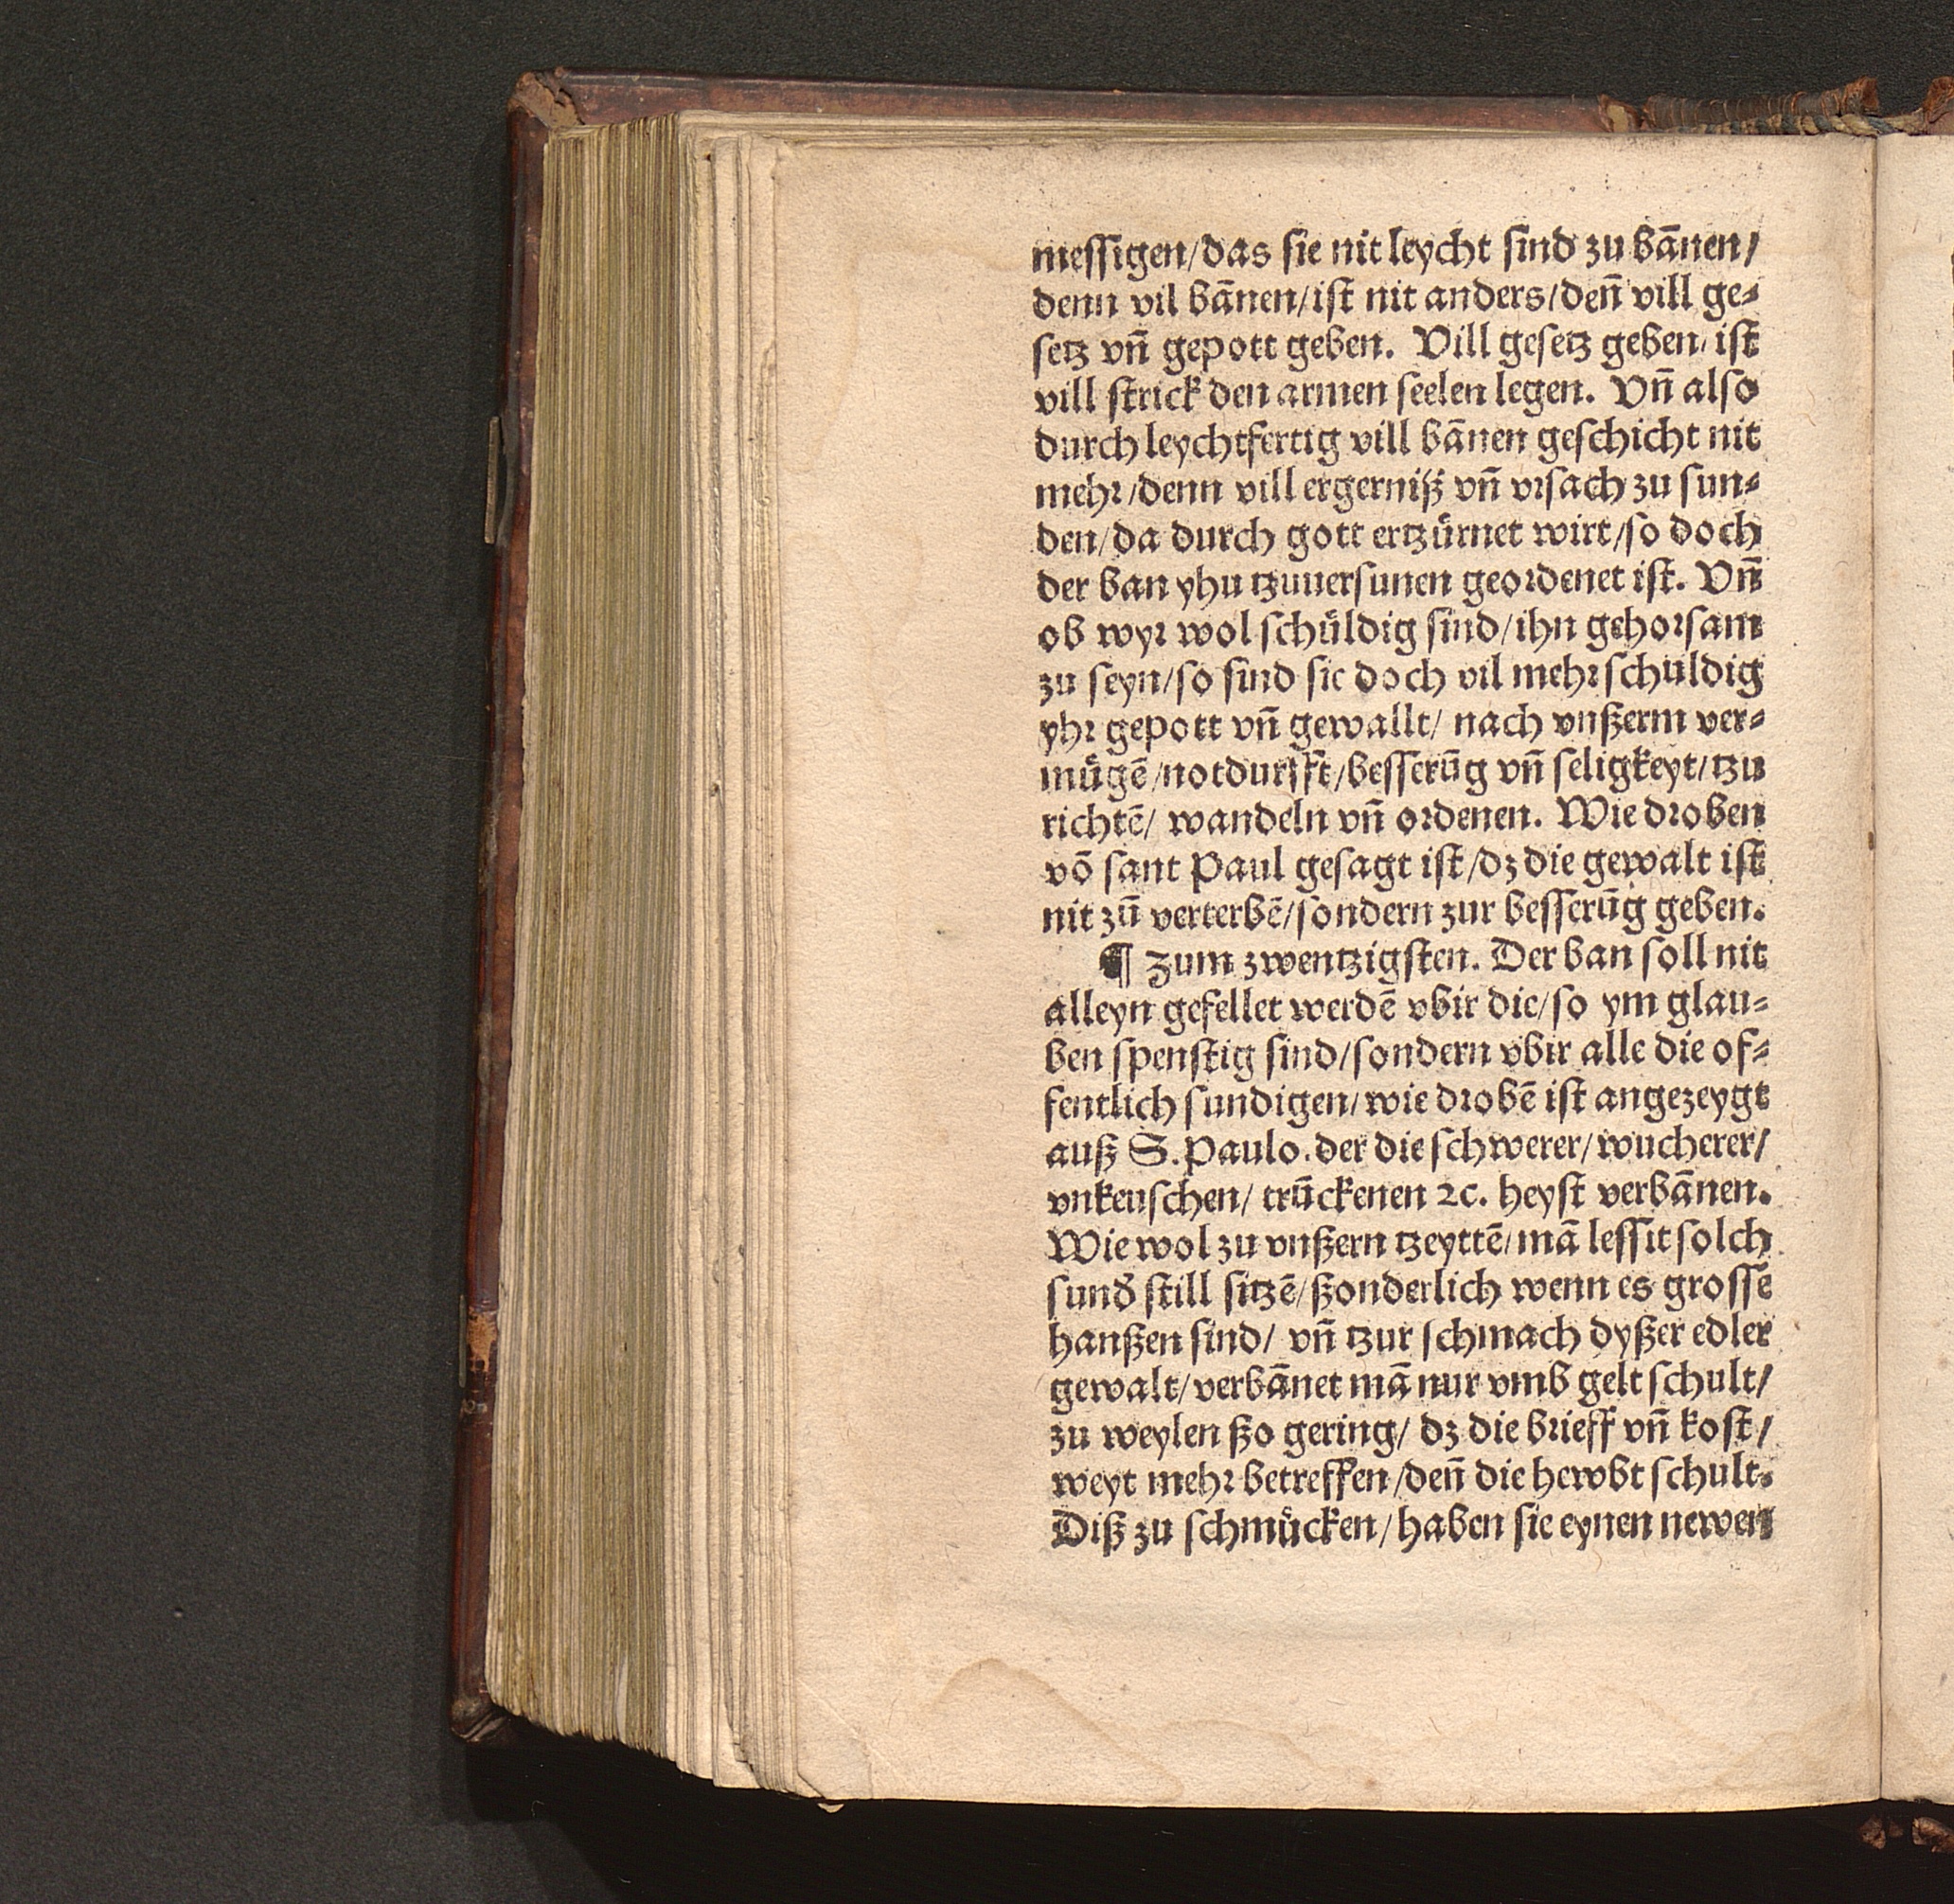 messigen/das sie nit leycht sind zu bānen/
denn vil bānen/ist nit anders/deñ vill ge⸗
setz vñ gepott geben. Vill gesetz geben/ist
vill strick den armen seelen legen. Vñ also
durch leychtfertig vill bānen geschicht nit
mehr/denn vill ergerniß vñ vrsach zu sun⸗
den/da durch gott ertzürnet wirt/so doch
der ban yhu tzuuersunen geordenet ist. Vñ
ob wyr wol schüldig sind/ihn gehorsam
zu seyn/so sind sie doch vil mehr schuldig
yhr gepott vñ gewallt/ nach vnßerm ver⸗
mügē/notdurfft/besserūg vñ seligkeyt/tzu
richtē/ wandeln vñ ordenen. Wie droben
vō sant Paul gesagt ist/dz die gewalt ist
nit zū verterbē/sondern zur besserūg geben.
¶ Zum zwentzigsten. Der ban soll nit
alleyn gefellet werdē vbir die/so ym glau⸗
ben spenstig sind/sondern vbir alle die of⸗
fentlich sundigen/wie drobē ist angezeygt
auß S. Paulo. der die schwerer/wucherer/
vnkeuschen/ trūckenen ꝛc. heyst verbānen.
Wie wol zu vnßern tzeyttē/mā lessit solch
sund̄ still sitzē/ßonderlich wenn es grosse
hanßen sind/ vñ tzur schmach dyßer edler
gewalt/verbānet mā nur vmb gelt schult/
zu weylen ßo gering/ dz die brieff vñ kost/
weyt mehr betreffen/deñ die hewbt schult.
Diß zu schmücken/haben sie eynen newen